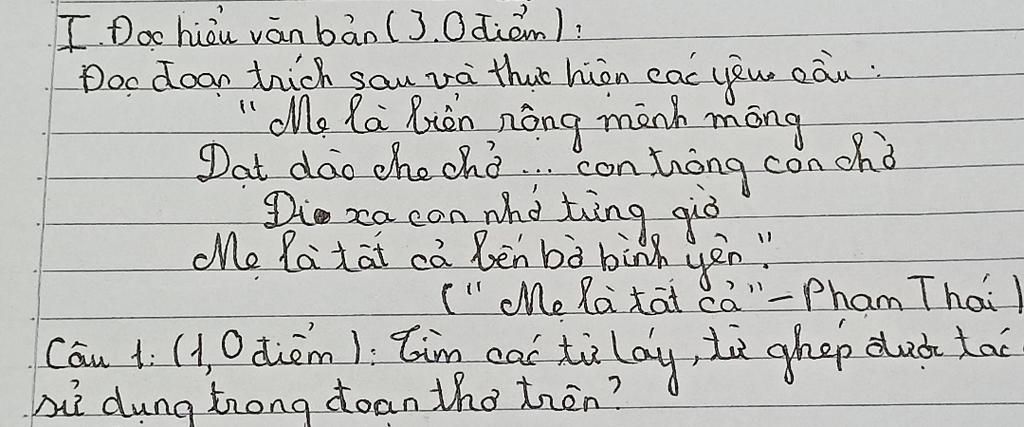 I. Đọc hiểu văn bản (3.0 điểm):
Đọc đoạn trích sau và thực hiện các yêu cầu:
"Mẹ là biển rộng mênh mông
Dạt dào che chở... con trông con chờ
Đi xa con nhớ từng giờ
Mẹ là tất cả bến bờ bình yên."
("Mẹ là tất cả" - Phạm Thái)
Câu 1: (1,0 điểm): Tìm các từ láy, từ ghép được tác
sử dụng trong đoạn thơ trên?